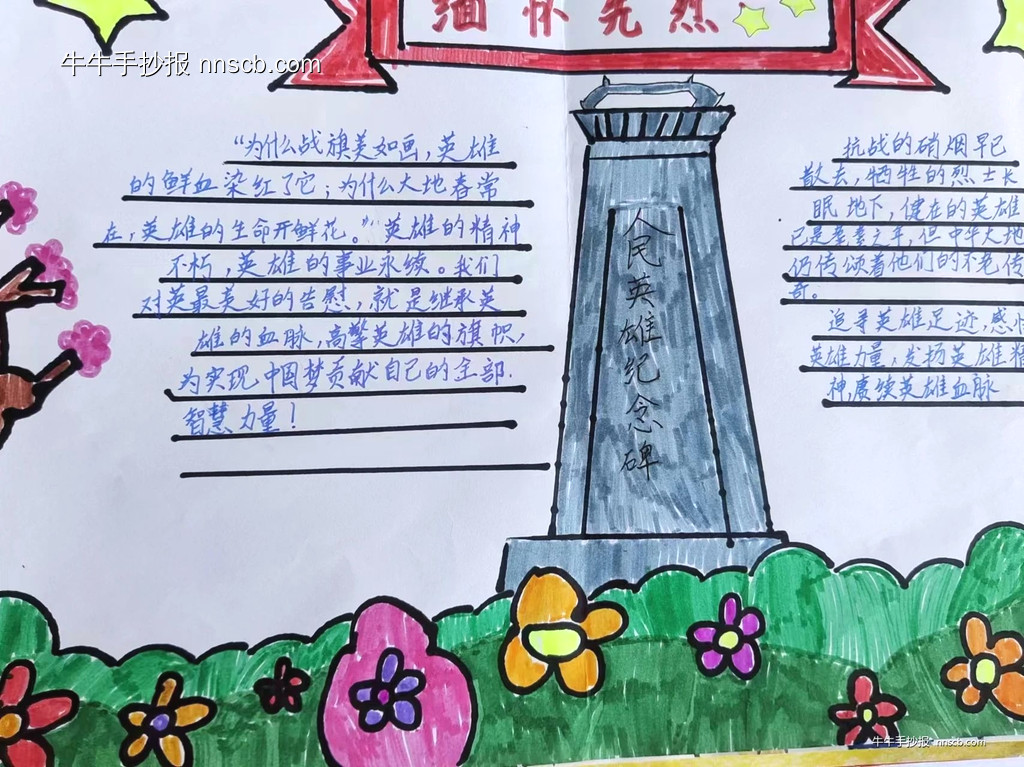 缅怀先烈
牛牛手抄报 nnscb.com
“为什么战旗美如画，英雄
的鲜血染红了它；为什么大地春常
在，英雄的生命开鲜花。”英雄的精神
不朽，英雄的事业永续。我们
对英最美好的告慰，就是继承英
雄的血脉，高擎英雄的旗帜，
为实现中国梦贡献自己的全部.
智慧力量！
人民英雄纪念碑
抗战的硝烟早已
散去，牺牲的烈士长
眠地下，健在的英雄
已是耄耋之年，但中华大地
仍传颂着他们的不老传
奇。
追寻英雄足迹，感怀
英雄力量，发扬英雄精
神，赓续英雄血脉
牛牛手抄报 nnscb.com